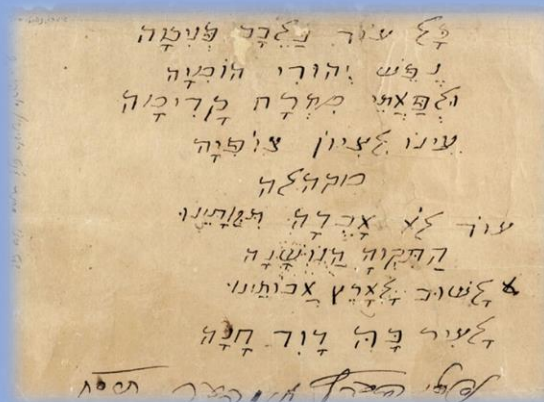 כָּל עוֹד בַּלֵּבָב פְּנִימָה
נֶפֶשׁ יְהוּדִי הוֹמִיָּה
וּלְפַאֲתֵי מִזְרָח קָדִימָה
עֵינוֹ לְצִיוֹן צוֹפִיָּה
מקהלה
עוֹד לֹא אָבְדָה תִּקְוָתֵינוּ
הַתִּקְוָה הַנּוֹשָׁנָה
לָשׁוּב לְאֶרֶץ אֲבוֹתֵינוּ
לְעִיר בָּהּ דָּוִד חָנָה
נפתלי אימבער תרסח